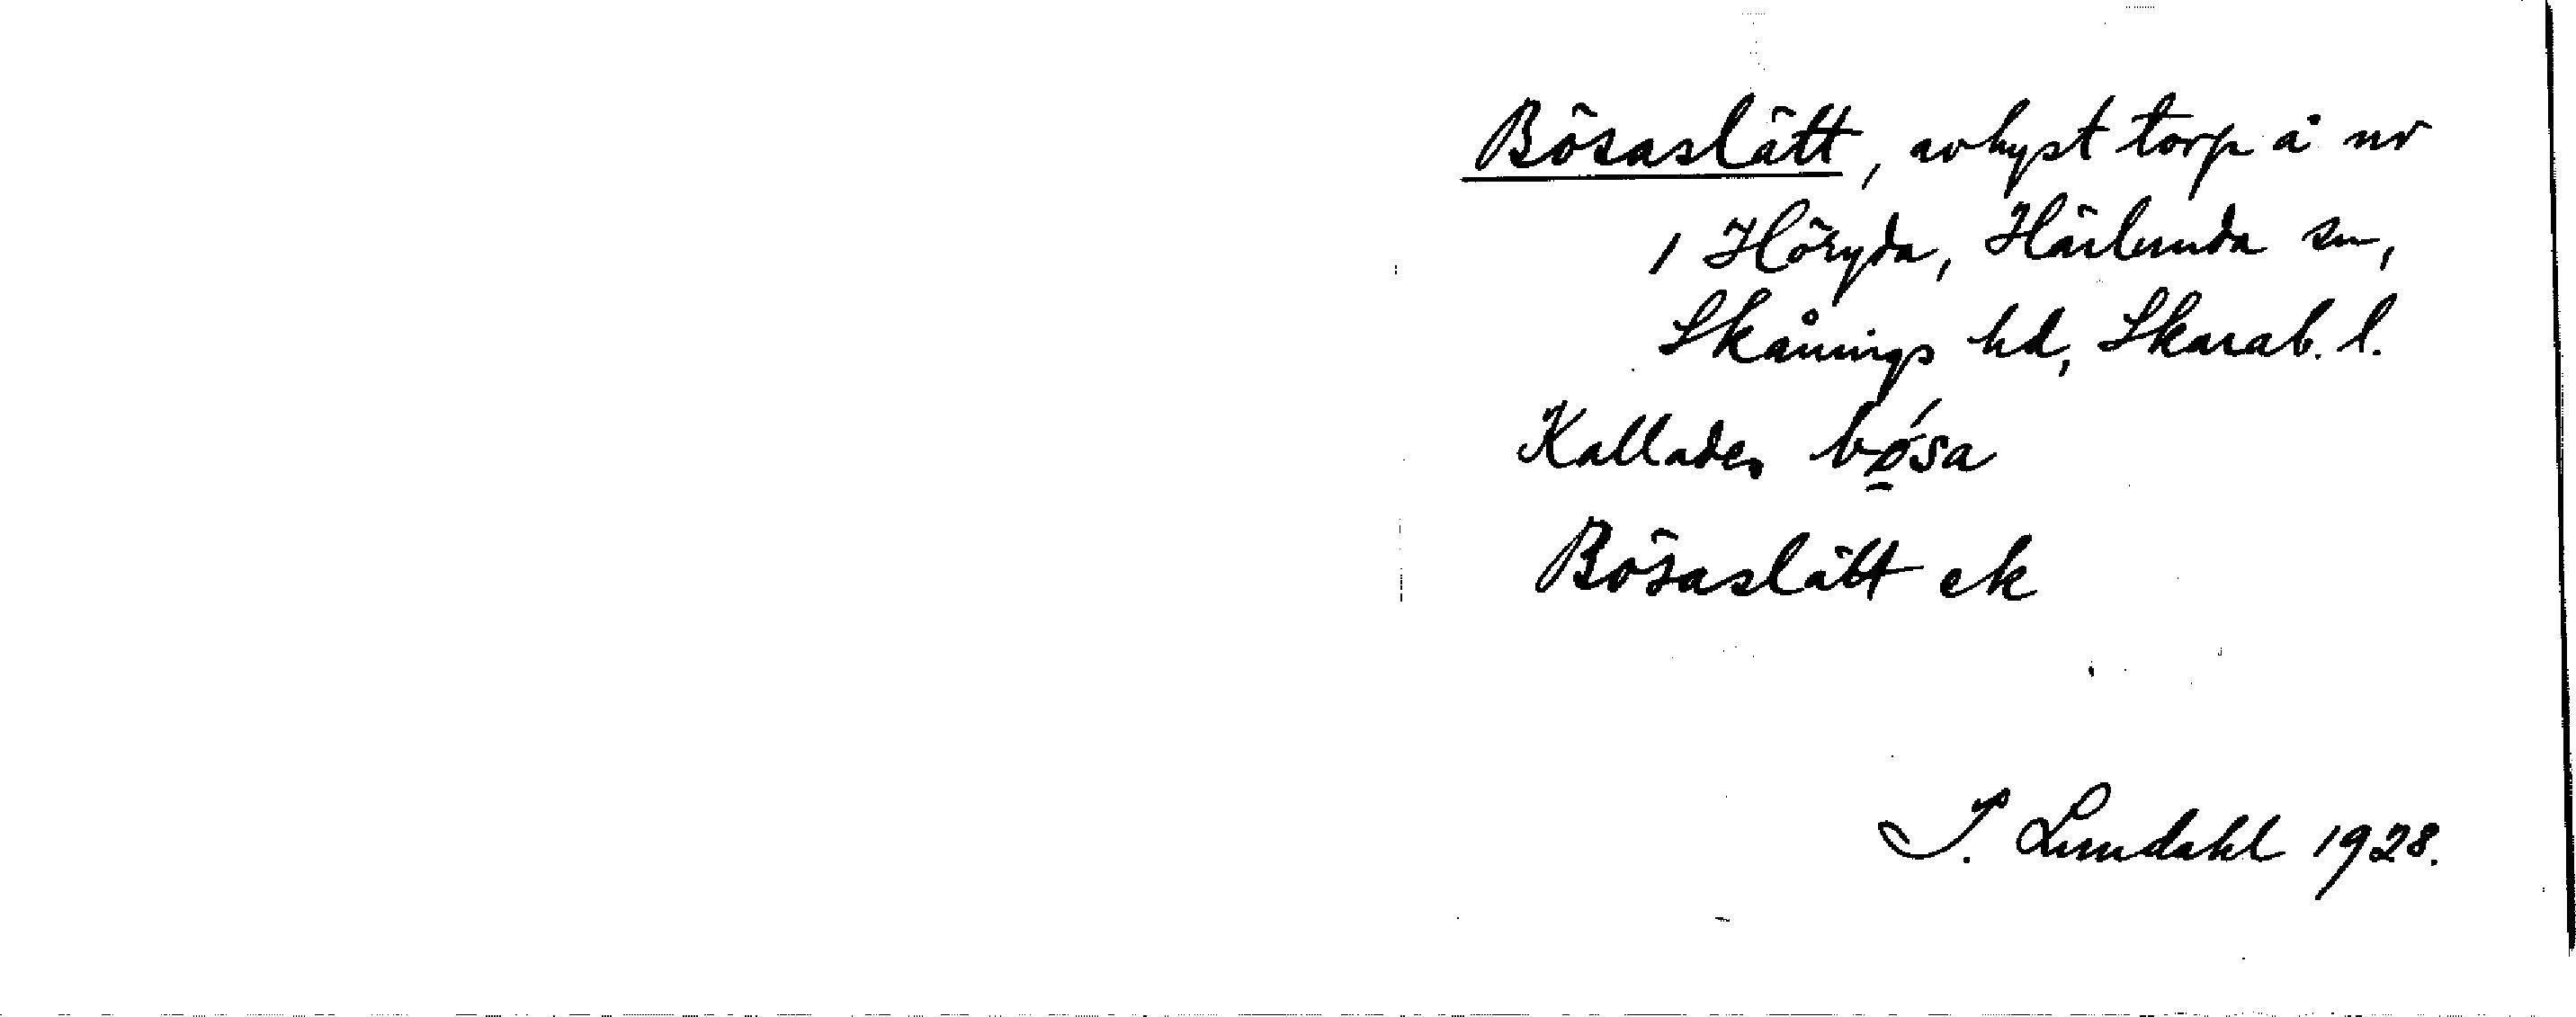 Bösaslätt, avhyst torp å nr
1 Höryda, Härlunda sn,
Skånings hd, Skarab. l.
Kallades bǿ̱sa
Bösaslätt ek
I. Lundahl 1928.